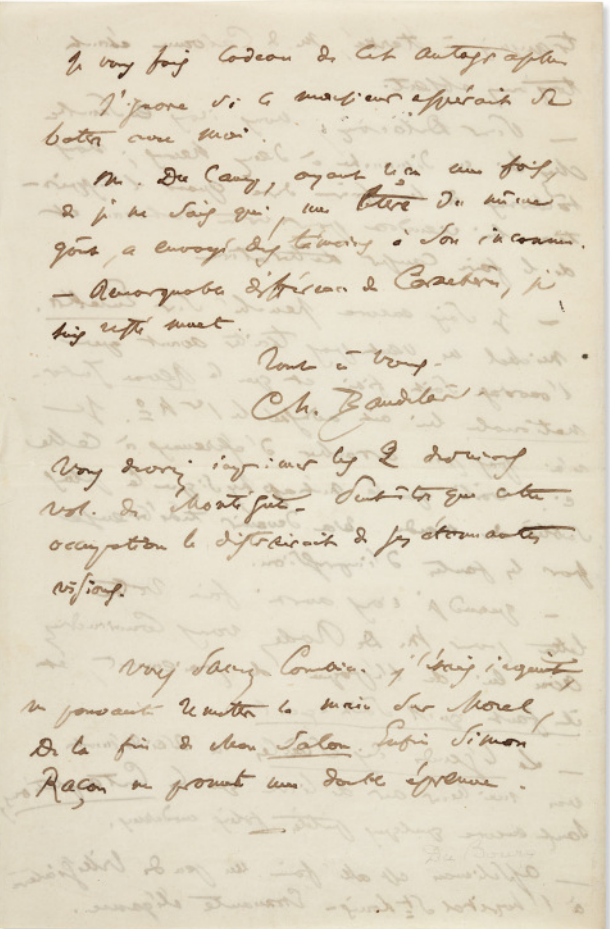 Je vous fais cadeau de cet autographe
J'ignore si ce monsieur espérait se
battre avec moi.
M. Du Camp, ayant reçu une fois,
de je ne sais qui, une lettre du même
goût, a envoyé des témoins à son inconnu.
— Remarquable différence de caractères, je
suis resté muet.
Tout à vous.
Ch. Baudelaire
Vous devriez imprimer les 2 derniers
vol. de Montégut. Peut-être que cette
occupation le distrairait de ses étonnantes
visions.
Vous savez combien j'étais inquiet,
ne pouvant remettre la main sur Morel
de la fin de mon Salon. Enfin Simon
Raçon me promet une double épreuve.